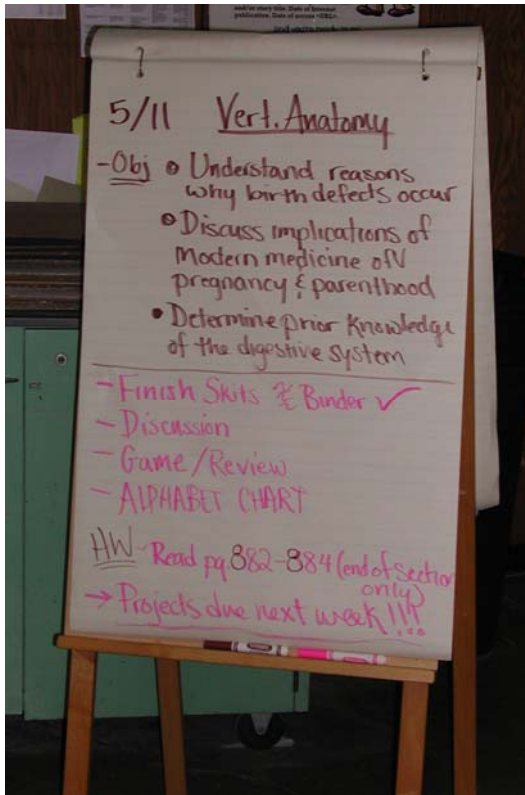 and/or story title. Date of Internet
publication. Date of access <URL>.
5/11 Vert. Anatomy
- Obj • Understand reasons
why birth defects occur
• Discuss implications of
Modern medicine of
pregnancy & parenthood
• Determine prior knowledge
of the digestive system
- Finish Skits & Binder ✓
- Discussion
- Game/Review
- ALPHABET CHART
HW - Read pg. 882-884 (end of section
only)
→ Projects due next week!!!...